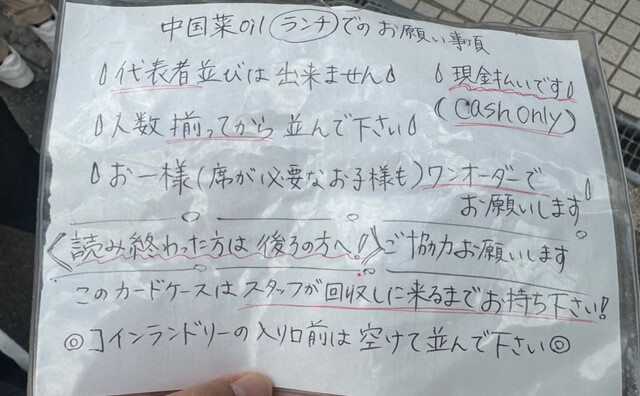 中国菜oil ランチでのお願い事項
代表者並びは出来ません
現金払いです
(cash only)
人数揃ってから並んで下さい
お一様(席が必要なお子様も)ワンオーダーで
お願いします
《読み終わった方は後ろの方へ!》ご協力お願いします
このカードケースはスタッフが回収しに来るまでお持ち下さい!
◎コインランドリーの入り口前は空けて並んで下さい◎